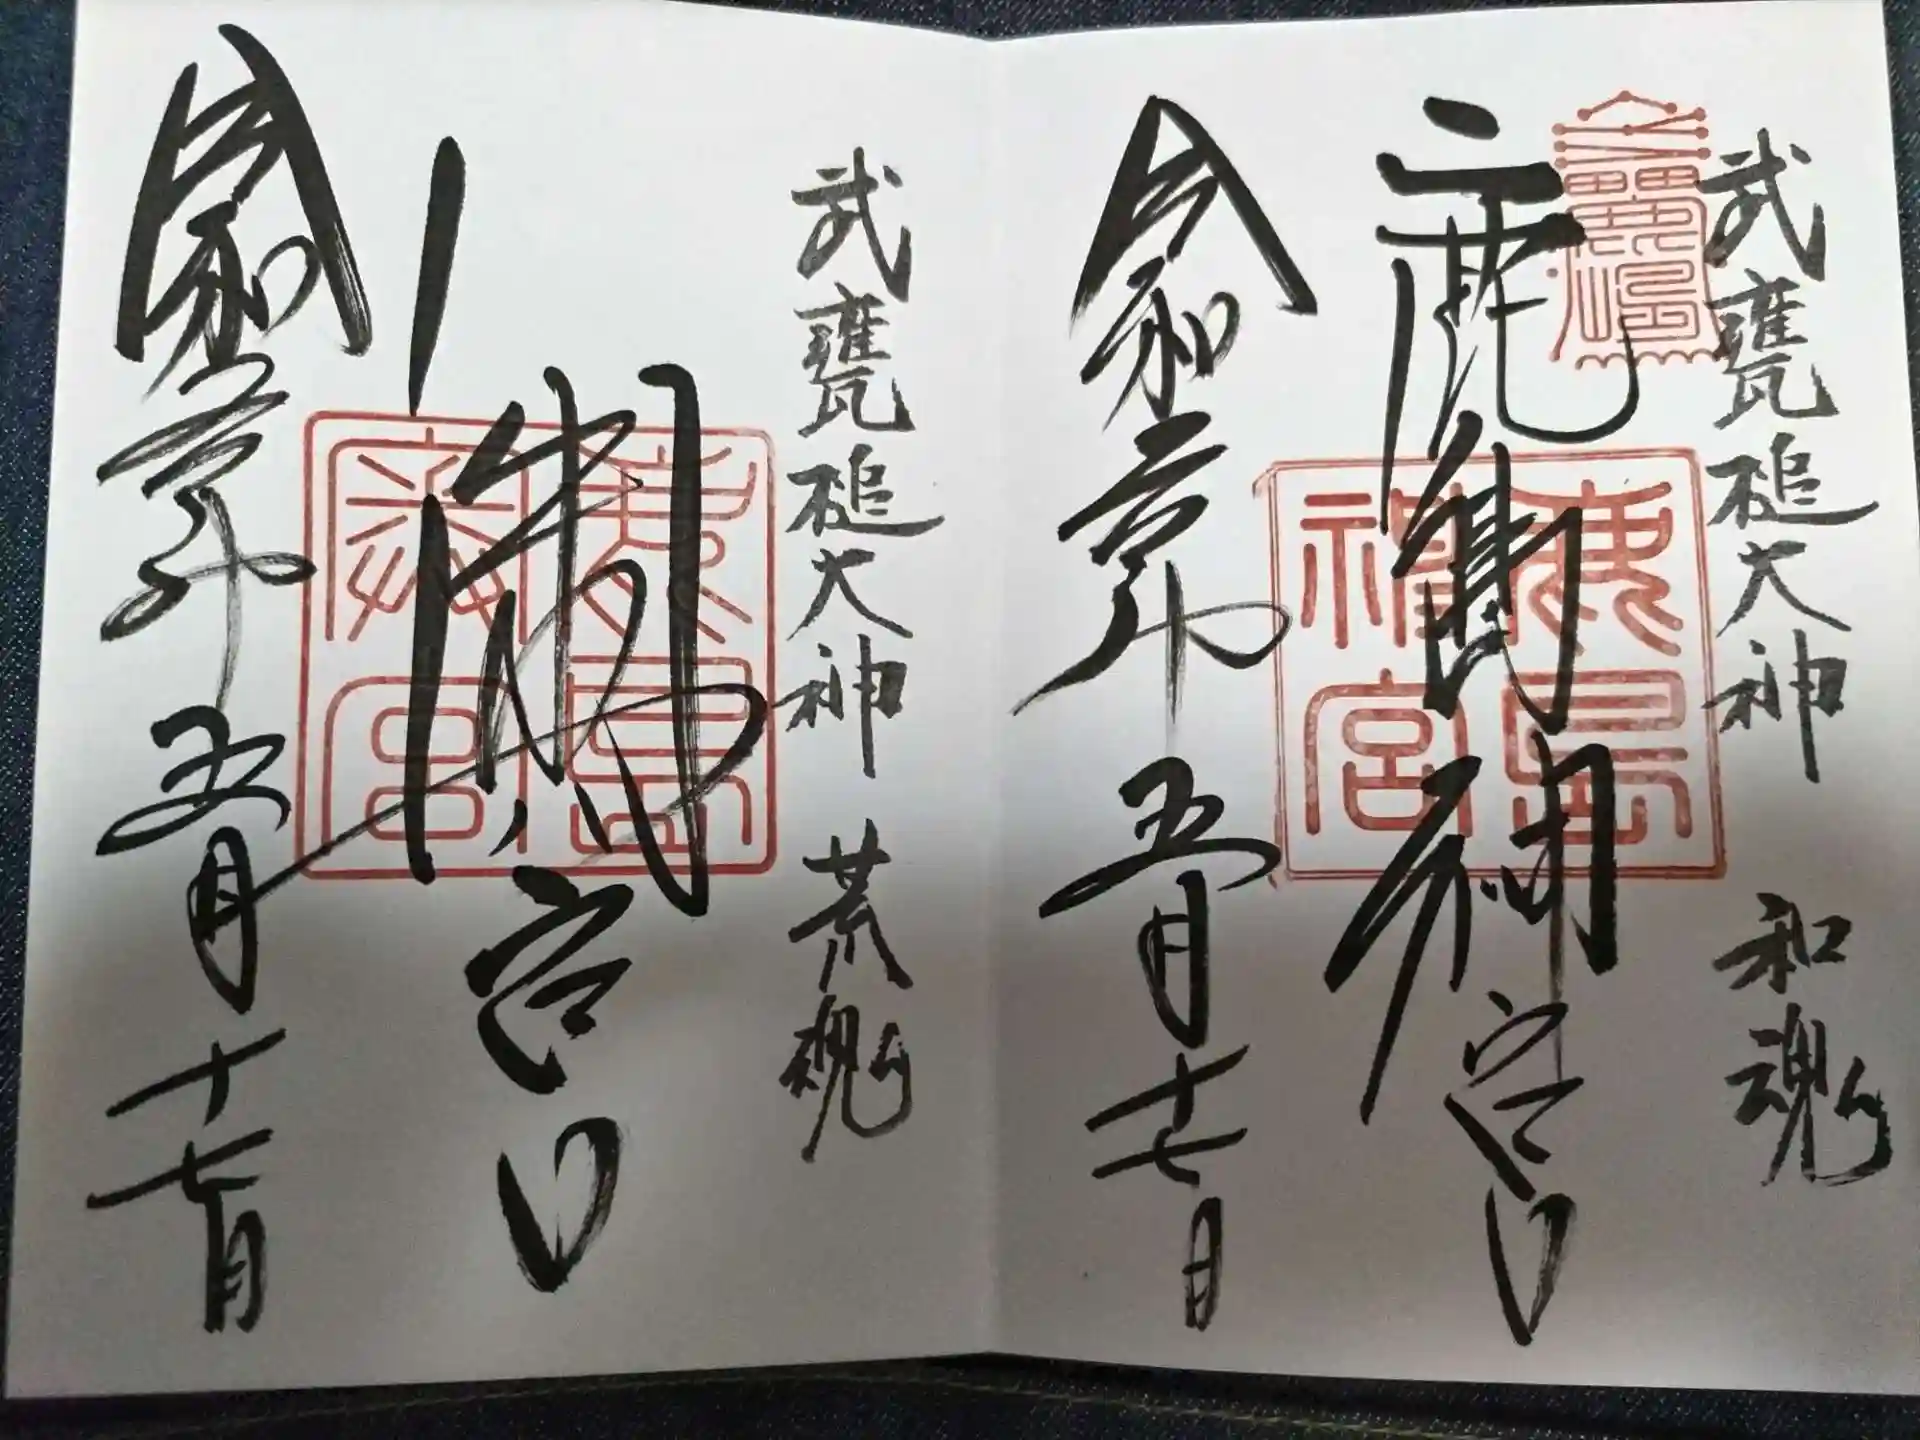 武甕槌大神 和魂
鹿島神宮
鹿島神宮
令和 年五月十七日
武甕槌大神 荒魂
奥宮
鹿島奥宮
令和 年五月十七日